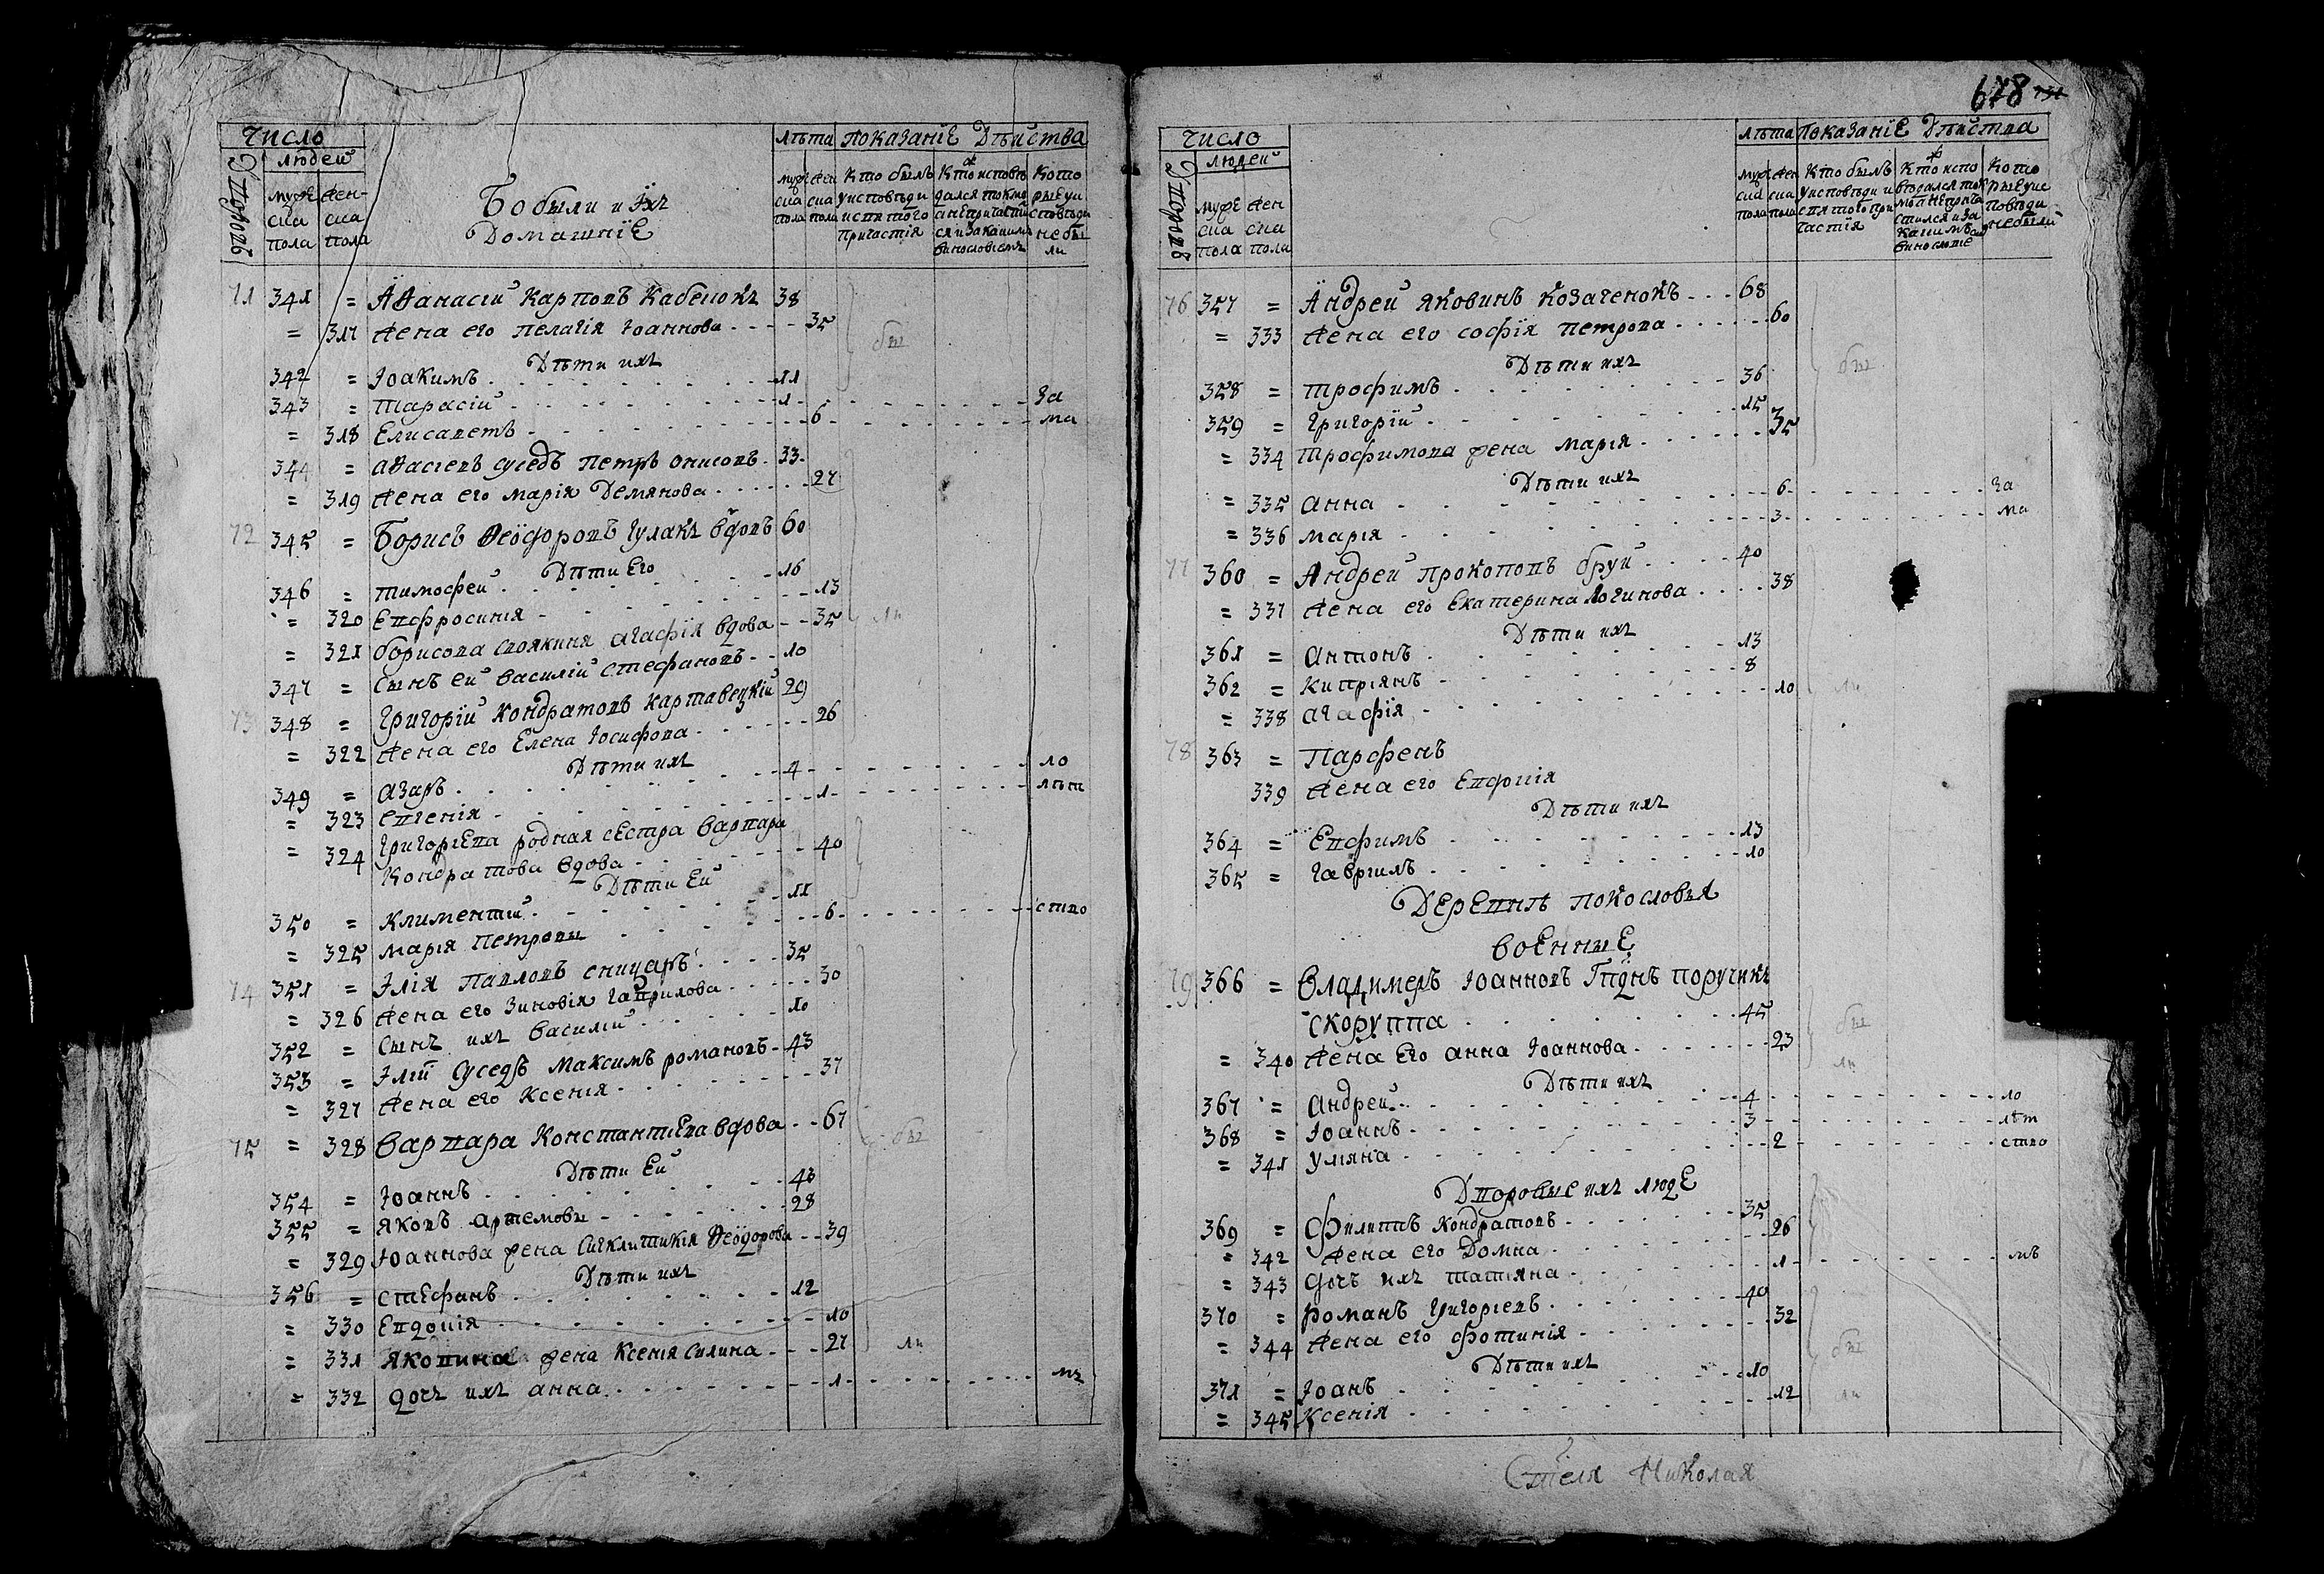 Число
Людей
Дворовъ
Мужеска пола
Женска пола
Бобыли и Ихъ
Домашніе
Лѣта
Мужеска пола
Женска пола
Показаніе Дѣйства
Кто былъ у исповѣди и святого причастія
Кто исповѣдался токмо а не причастился и за какимъ винословіемъ
Которые у исповѣди не были
71 341 = Аѳанасій Карповъ Кабенокъ 38
= 317 Жена его Пелагія Іоаннова 35 бы
Дѣти ихъ
342 = Іоакимъ 11
343 = Тарасій 1 за
= 318 Елисаветъ 6 ма
344 = Аѳасіевъ сусѣдъ Петръ Онисовъ 33
= 319 Жена его Марія Демянова 27
72 345 = Борисъ Ѳеодоровъ Гулакъ вдовъ 60
Дѣти Его
346 = Тимофей 16
= 320 Евфросинія 13
= 321 Борисова своякиня Агафія вдова 35 ли
347 = Сынъ ей Василій Стефановъ 10
73 348 = Григорій Кондратовъ Картавецкій 29
= 322 Жена его Елена Іосифова 26
Дѣти ихъ
349 = Азаръ 4 ло
= 323 Евгенія 1 лѣт
= 324 Григоріева родная сестра Варвара
Кондратова вдова 40
Дѣти Ей
350 = Климентій 11
= 325 Марія Петровы 6 ство
74 351 = Илія Павловъ Сницаръ 35
= 326 Жена его Зиновія Гаврилова 30
352 = Сынъ ихъ Василій 10
353 = Иліи Сусѣдъ Максимъ Романовъ 43
= 327 Жена его Ксенія 37
75 = 328 Варвара Константиева вдова 67 бы
Дѣти Ей
354 = Іоаннъ 43
355 = Яковъ Артемовы 28
= 329 Іоаннова жена Сигклитикія Ѳеодорова 39
Дѣти ихъ
356 = Стефанъ 12
= 330 Евдокія 10
= 331 Яковина жена Ксенія Силина 27 ли
= 332 Дочъ ихъ Анна 1 мъ
678 731
Число
Людей
Дворовъ
Мужеска пола
Женска пола
Лѣта
Мужеска пола
Женска пола
Показаніе Дѣйства
Кто былъ у исповѣди и святого причастія
Кто исповѣдался токмо а не причастился и за какимъ винословіе
Которые у исповѣди не были
76 357 = Андрей Яковинъ Козаченокъ 68
= 333 Жена его Софія Петрова 60
Дѣти ихъ
358 = Трофимъ 36 бы
359 = Григорій 15
= 334 Трофимова жена Марія 35
Дѣти ихъ
= 335 Анна 6 за
= 336 Марія 3 ма
77 360 = Андрей Прокоповъ Бруй 40
= 337 Жена его Екатерина Логинова 38
Дѣти ихъ
361 = Антонъ 13
362 = Кипріянъ 8
= 338 Агафія 10 ли
78 363 = Парфенъ
339 Жена его Евфимія
Дѣти ихъ
364 = Евфимъ 13
365 = Гавріилъ 10
Деревнѣ Покословья
Военные
79 366 = Владимеръ Іоанновъ Гпднъ поручикъ
Скоруппа 45 бы
= 340 Жена Его Анна Іоаннова 23 ли
Дѣти ихъ
367 = Андрей 4 ло
368 = Іоаннъ 3 лѣт
= 341 Уліяна 2 ство
Дворовые ихъ люде
369 = Филиппъ Кондратовъ 35
= 342 Жена его Домна 26
= 343 Дочъ ихъ Татіяна 1 мъ
370 = Романъ Григоріевъ 40
= 344 Жена его Фотинія 32 бы
Дѣти ихъ
371 = Іоанъ 10
= 345 Ксенія 12 ли
Стеля Николая